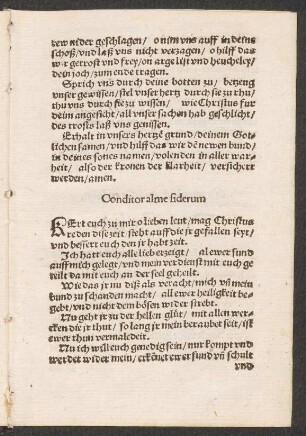 rew nider geschlagen / o nim vns auff in deine
schoß / vnd laß vns nicht verzagen / o hilff das
wir getrost vnd frey / on arge list vnd heucheley /
dein joch / zum ende tragen.
Sprich vns durch deine botten zu / bezeug
vnser gewissen / stel vnser hertz durch sie zu rhu /
thu vns durch sie zu wissen / wie Christus fur
deim angesicht / all vnser sachen hab geschlicht /
des trosts laß vns geniessen.
Erhalt in vnsers hertzē grund / deinen Göt-
lichen samen / vnd hilff das wir dē newen bund /
in deines sones namen / volenden in aller war-
heit / also der kronen der klarheit / versichert
werden / amen.
Conditor alme siderum
KErt euch zu mir o lieben leut / mag Christus
reden dise zeit steht auff die jr gefallen seyt /
vnd bessert euch den jr habt zeit.
Ich hatt euch alle lieb erzeigt / all ewer sund
auff mich gelegt / vnd mein verdienst mit euch ge
teilt da mit euch an der seel geheilt.
Wie das jr nu dist als veracht / mich vñ mein
bund zu schanden macht / all ewer heiligkeit be-
geht / vnd nicht dem bösen wider strebt.
Nu geht jr zu der hellen glut / mit allen wer-
cken die jr thut / so lang jr mein beraubet seit / ist
ewer thun vermaledeit.
Nu ich will euch genedig sein / nur kompt vnd
werdet wider mein / erkēnet ewer sund vñ schult
vnd